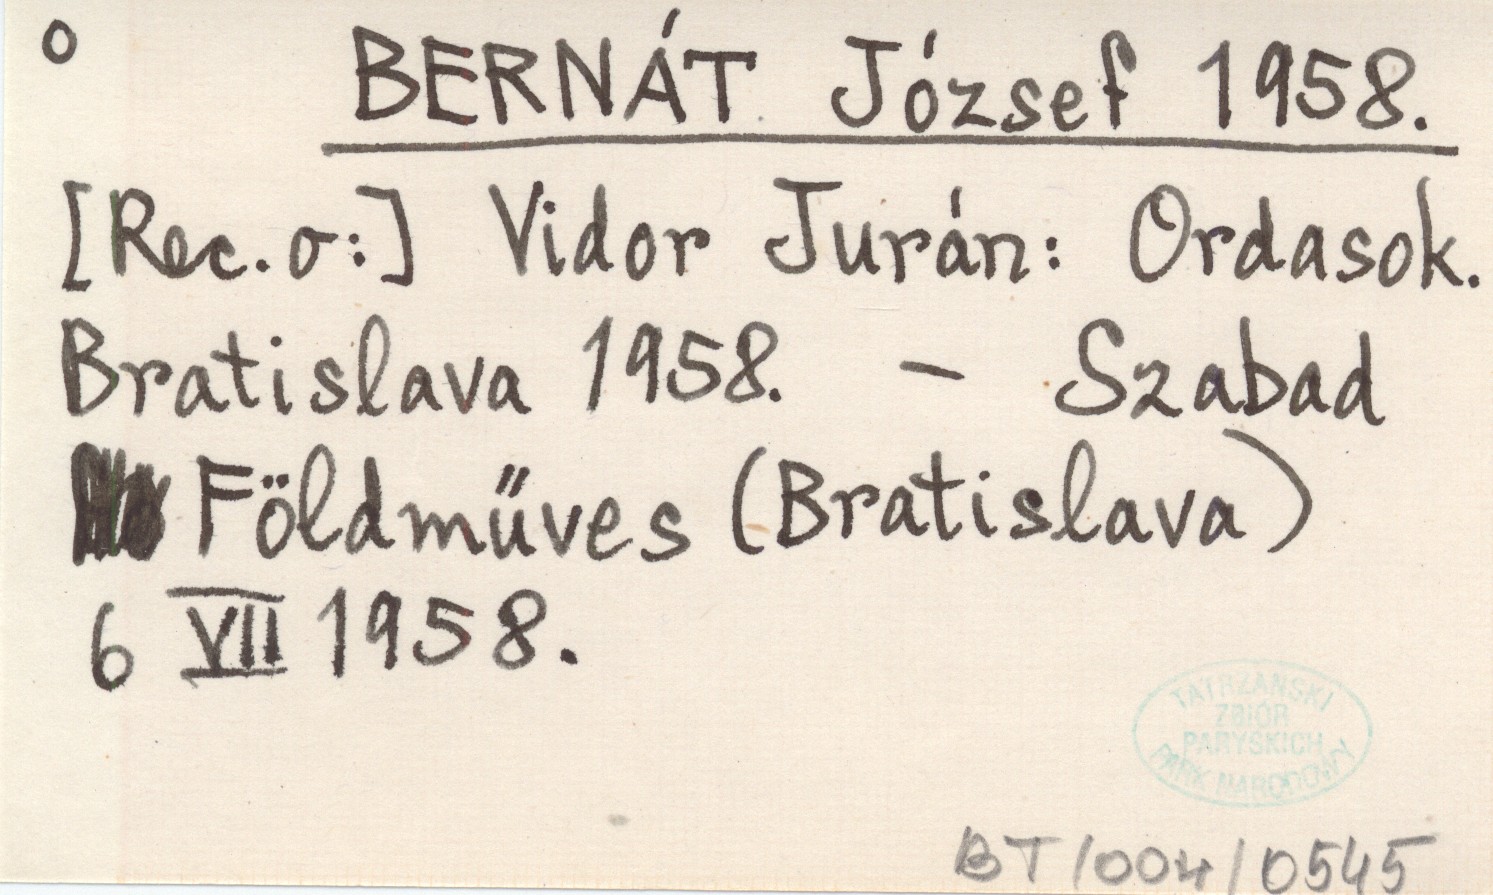 o BERNÁT József 1958.
[Rec. o:] Vidor Jurán: Ordasok.
Bratislava 1958. – Szabad
Földműves (Bratislava)
6 VII 1958.
TATRZAŃSKI
ZBIÓR
PARYSKICH
PARK NARODOWY
BT/004/0545